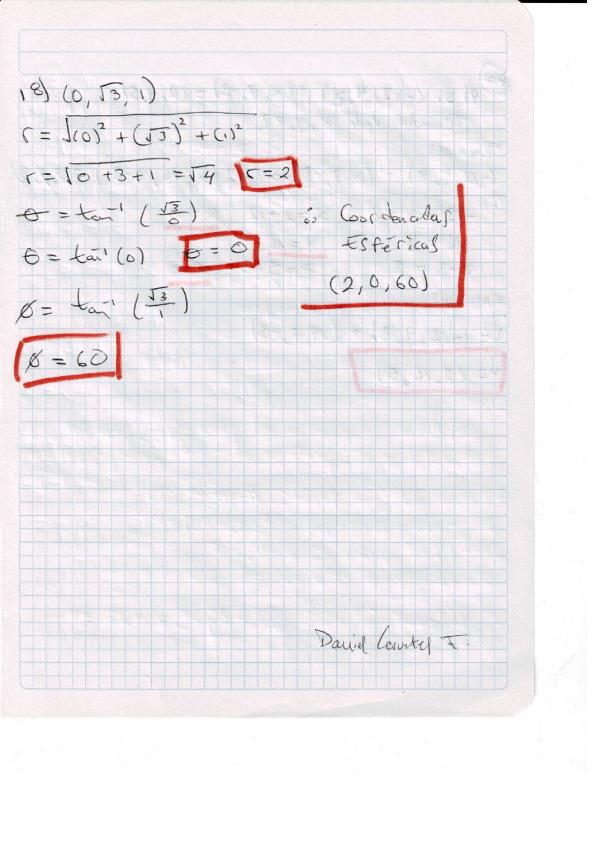 18) (0, √3, 1)
r = √(0)² + (√3)² + (1)²
r = √0 + 3 + 1 = √4 r = 2
θ = tan⁻¹ (√3/0)
θ = tan⁻¹ (0) θ = 0
ø = tan⁻¹ (√3/1)
ø = 60
∴ Coordenadas
Esféricas
(2, 0, 60)
Daniel
F.